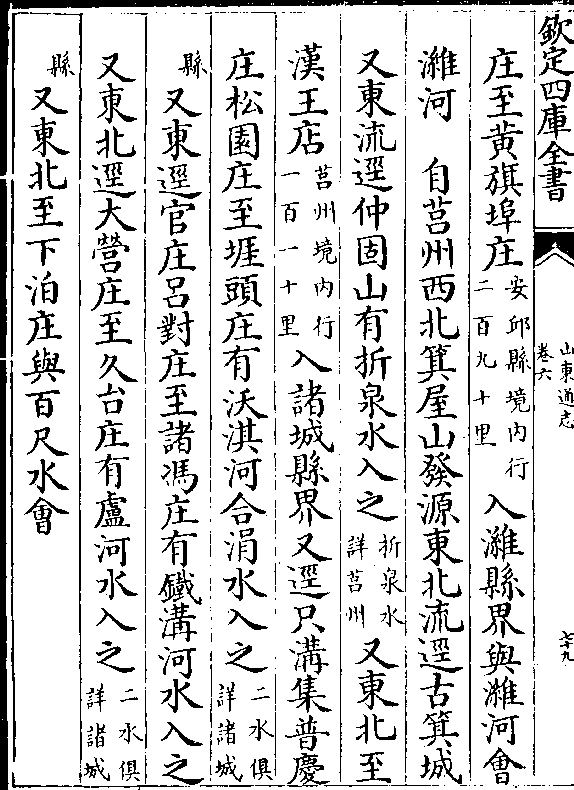 欽定四庫全書
山東通志
卷六
七十九
庄至黃旗埠庄安邱縣境内行二百九十里入濰縣界與濰河會
濰河　自莒州西北箕屋山發源東北流逕古箕城
又東流逕仲固山有折泉水入之折泉水詳莒州又東北至
漢王店莒州境内行一百一十里入諸城縣界又逕只溝集普慶
庄松園庄至堐頭庄有沃淇河合涓水入之二水俱詳諸城
縣又東逕官庄呂對庄至諸馮庄有鐵溝河水入之
又東北逕大營庄至久台庄有盧河水入之二水俱詳諸城
縣又東北至下泊庄與百尺水會